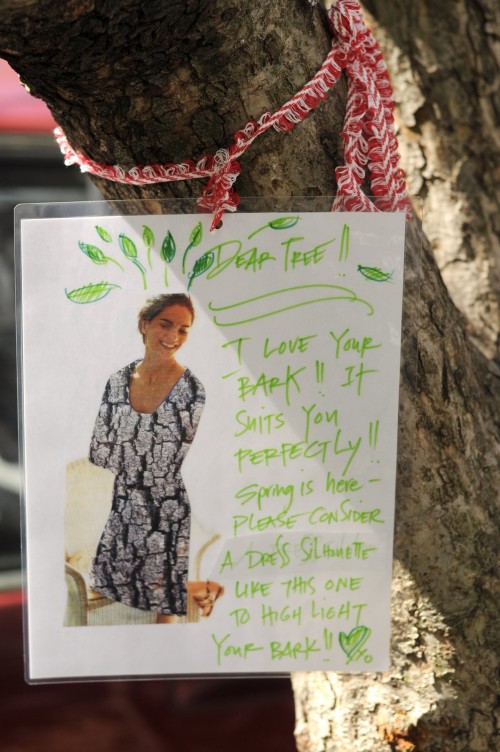 DEAR TREE!!
I LOVE YOUR
BARK!! IT
SUITS YOU
PERFECTLY!!
Spring is here -
PLEASE CONSIDER
A DRESS SILHOUETTE
LIKE THIS ONE
TO HIGH LIGHT
YOUR BARK!!